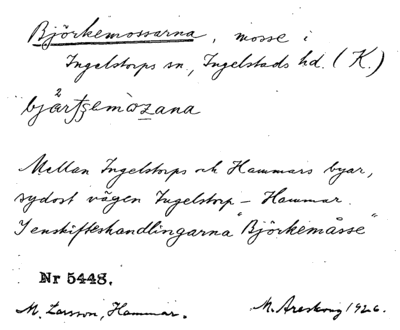 Björkemossarna, mosse i
Ingelstorps sn., Ingelstads hd. (K.)
Mellan Ingelstorps och Hammars byar,
sydost vägen Ingelstorp – Hammar.
I enskifteshandlingarna "Björkemåsse"
Nr 5448.
M. Larsson, Hammar. M. Areskoug 1926.